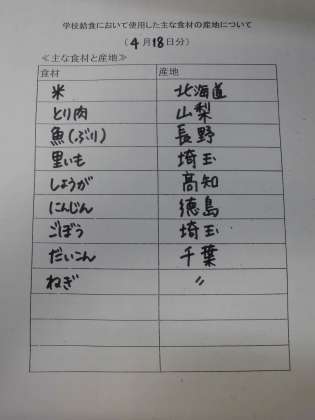 学校給食において使用した主な食材の産地について
(4月18日分)
≪主な食材と産地≫
食材 産地
米 北海道
とり肉 山梨
魚(ぶり) 長野
里いも 埼玉
しょうが 高知
にんじん 徳島
ごぼう 埼玉
だいこん 千葉
ねぎ 〃